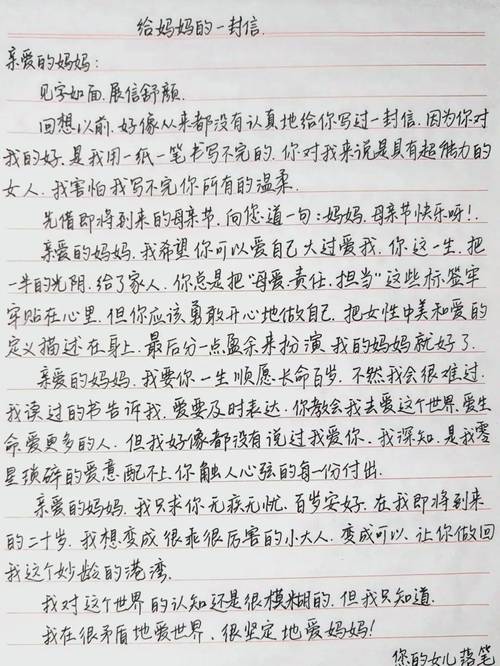 给妈妈的一封信.
亲爱的妈妈:
见字如面.展信舒颜.
回想以前.好像从来都没有认真地给你写过一封信.因为你对
我的好.是我用一纸一笔书写不完的.你对我来说是具有超能力的
女人.我害怕我写不完你所有的温柔.
先借即将到来的母亲节.向您道一句:妈妈.母亲节快乐呀!.
亲爱的妈妈.我希望你可以爱自己大过爱我.你这一生.把
一半的光阴.给了家人.你总是把“母爱.责任.担当”这些标签牢
牢贴在心里.但你应该勇敢开心地做自己.把女性中美和爱的
定义描述在身上.最后分一点盈余来扮演.我的妈妈就好了.
亲爱的妈妈.我要你一生顺愿长命百岁.不然我会很难过.
我读过的书告诉我.爱要及时表达.你教会我去爱这个世界.爱生
命爱更多的人.但我好像都没有说过我爱你.我深知.是我零
星琐碎的爱意配不上.你触人心弦的每一份付出.
亲爱的妈妈.我只求你无疾无忧.百岁安好.在我即将到来
的二十岁.我想变成很乖很厉害的小大人.变成可以.让你做回
我这个妙龄的港湾.
我对这个世界的认知还是很模糊的.但我只知道.
我在很矛盾地爱世界.很坚定地爱妈妈!
你的女儿落笔